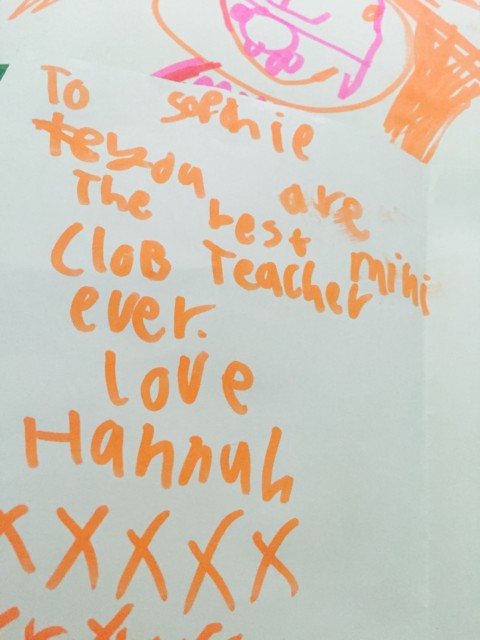 To sophie
teyou are
The best mini
CloB Teacher
ever.
love
Hannah
XXXXX